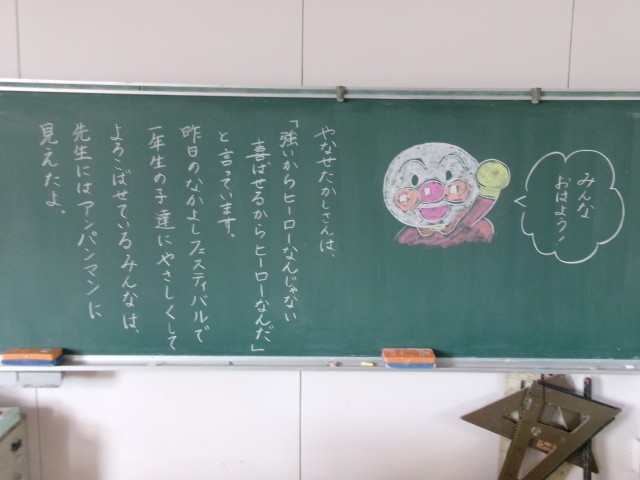 みんな
おはよう！
やなせたかしさんは、
「強いからヒーローなんじゃない
喜ばせるからヒーローなんだ」
と言っています。
昨日のなかよしフェスティバルで
一年生の子達にやさしくして
よろこばせているみんなは、
先生にはアンパンマンに
見えたよ。